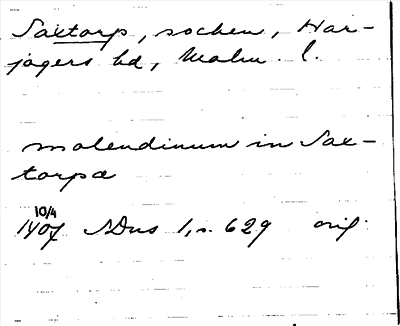 Saxtorp, socken, Har-
jagers hd, Malm. l.
molendinum in Sax-
torpæ
10/4
1407 SDns 1, s. 629 orig.